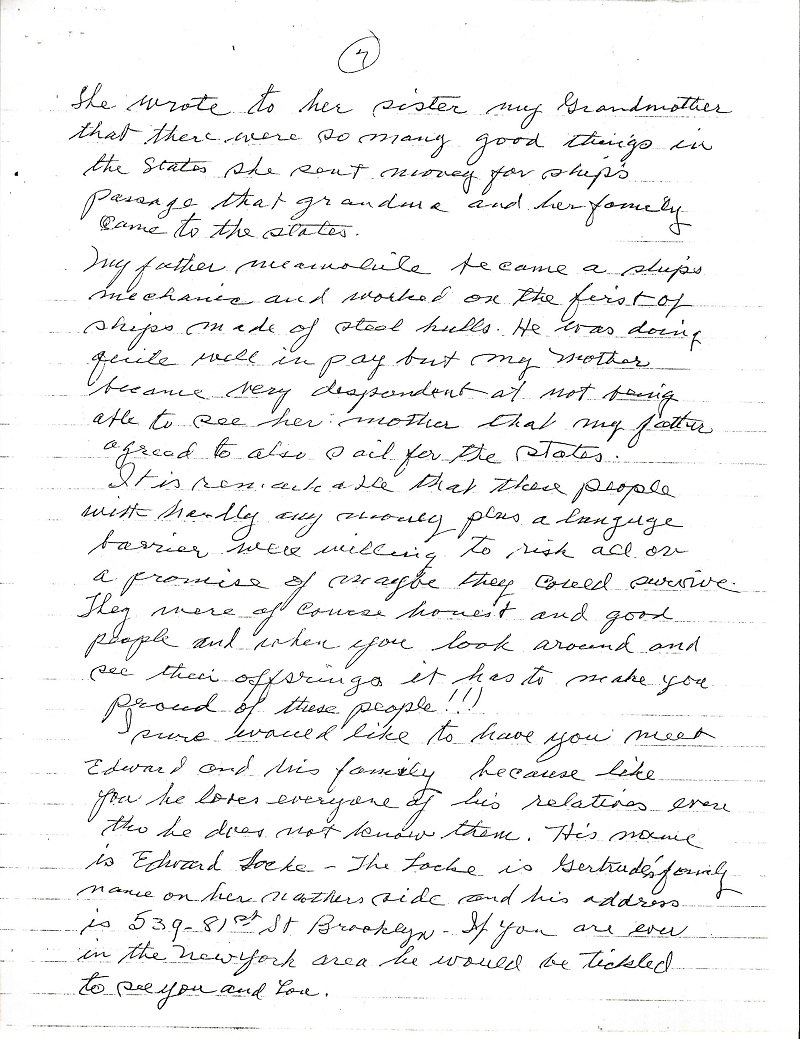 7
She wrote to her sister my Grandmother
that there were so many good things in
the States she sent money for ship's
passage that grandma and her family
came to the states.
My father meanwhile became a ships
mechanic and worked on the first of
ships made of steel hulls. He was doing
quite well in pay but my mother
became very despondent at not being
able to see her mother that my father
agreed to also sail for the states.
It is remarkable that these people
with hardly any money plus a languge
barrier were willing to risk all on
a promise of maybe they could survive.
They were of course honest and good
people and when you look around and
see their offsrings it has to make you
proud of these people!!!
I sure would like to have you meet
Edward and his family because like
you he loves everyone of his relatives even
tho he does not know them. His name
is Edward Locke - The Locke is Gertrude's family
name on her mothers side and his address
is 539-81st St Brooklyn - If you are ever
in the New York area he would be tickled
to see you and Lou.